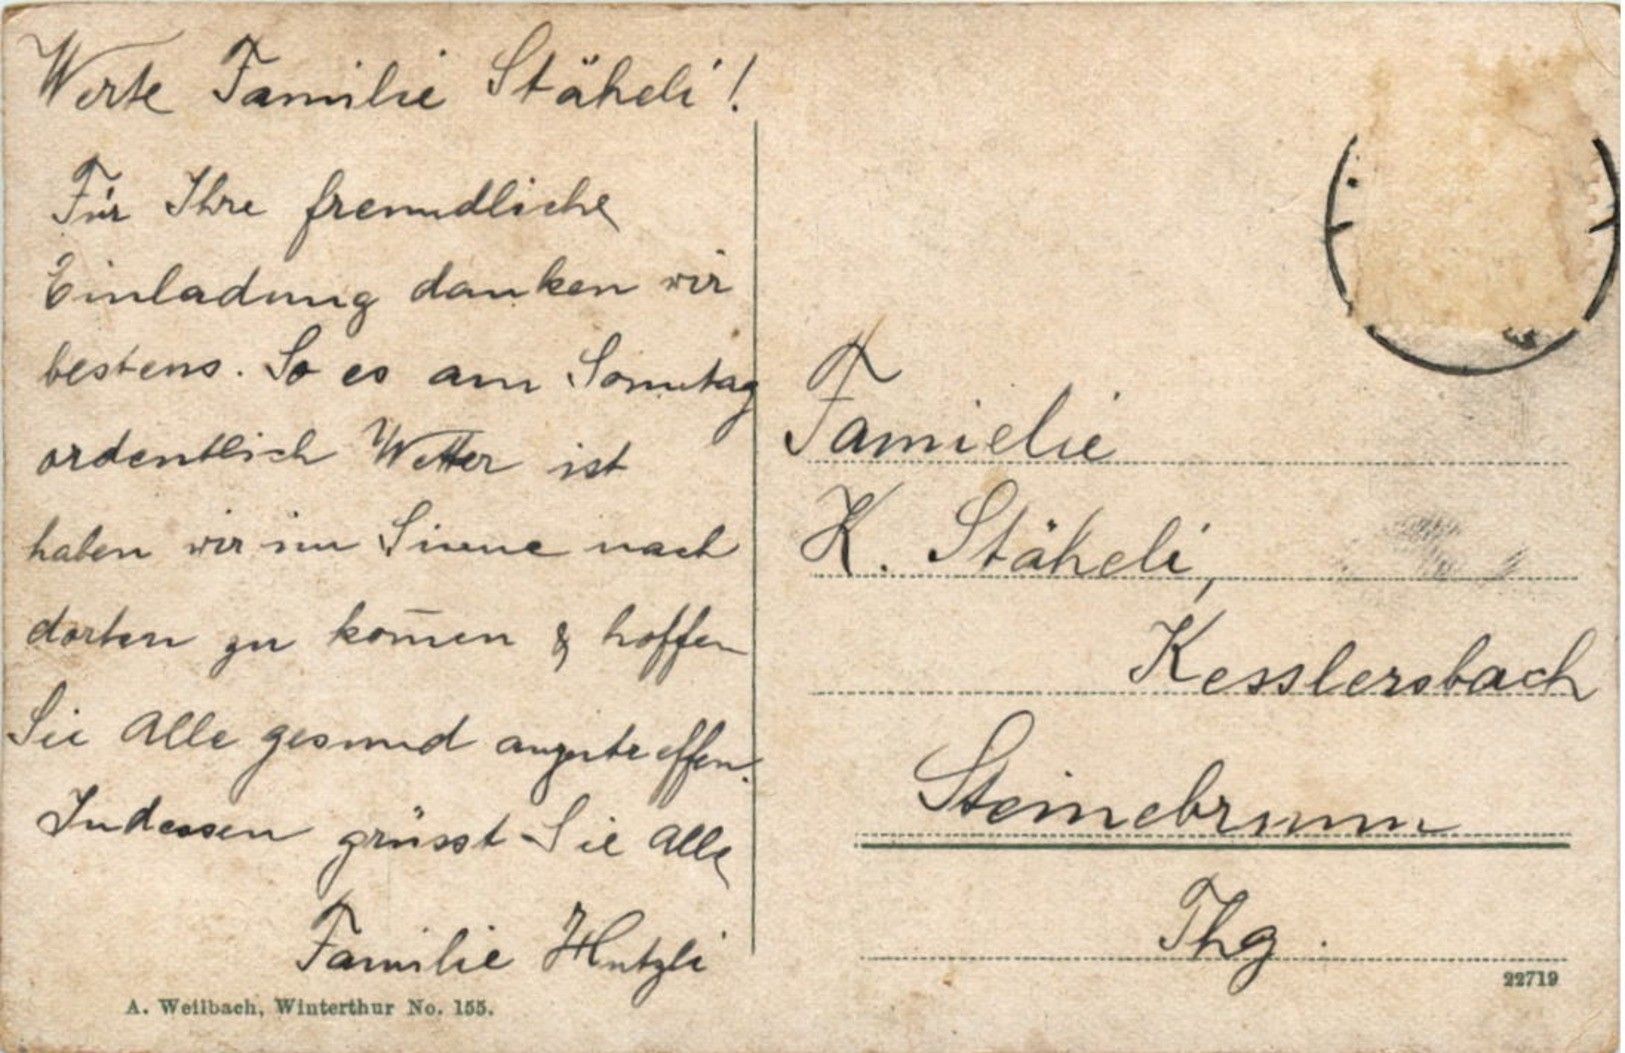 Werte Familie Stäheli!
Für Ihre freundliche
Einladung danken wir
bestens. So es am Sonntag
ordentlich Wetter ist
haben wir im Sinne nach
dorten zu kom̅en & hoffen
Sie Alle gesund anzutreffen.
Indessen grüsst Sie Alle
Familie Hutzli
A. Weilbach, Winterthur No. 155.
Famielie
K. Stäheli,
Kesslersbach
Steinebrunn
Thg.
22719